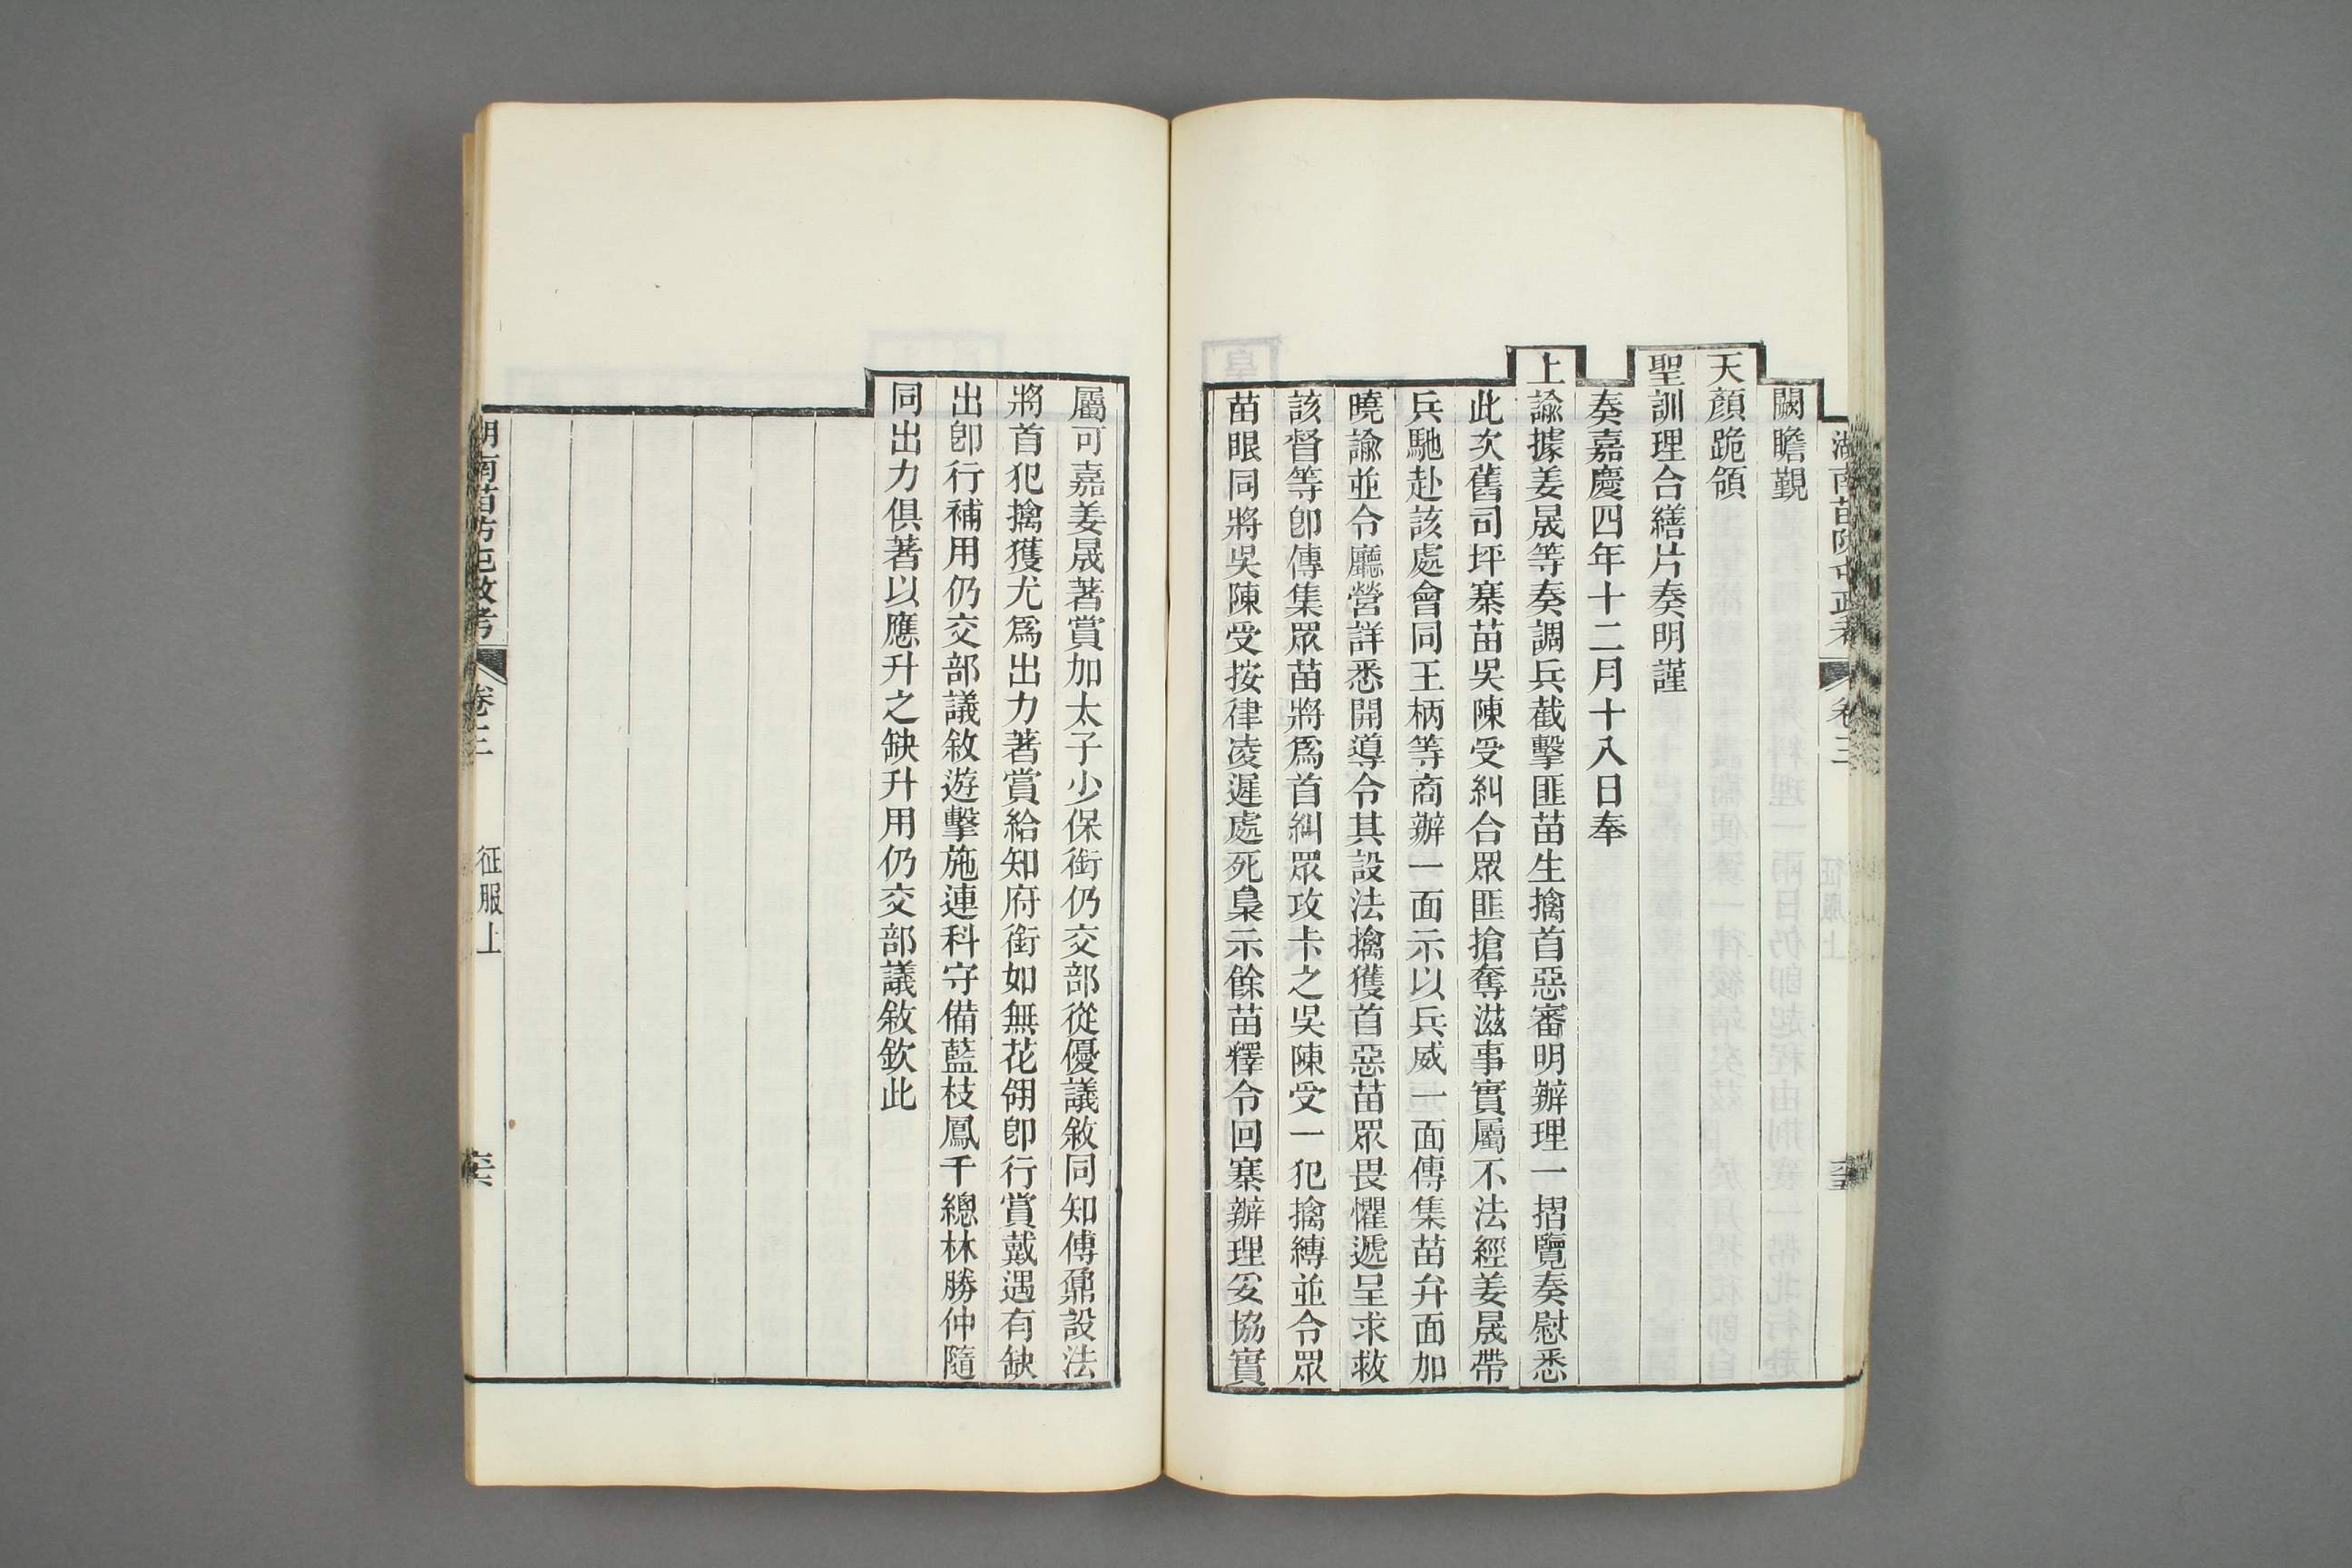 湖南苗防屯政考 卷三 征服上
闕瞻覲
天顏跪領
聖訓理合繕片奏明謹
奏嘉慶四年十二月十八日奉
上諭據姜晟等奏調兵截擊匪苗生擒首惡審明辦理一摺覽奏慰悉
此次舊司坪寨苗吳陳受糾合眾匪搶奪滋事實屬不法經姜晟帶
兵馳赴該處會同王柄等商辦一面示以兵威一面傳集苗弁面加
曉諭並令廳營詳悉開導令其設法擒獲首惡苗眾畏懼遞呈求救
該督等卽傳集眾苗將爲首糾眾攻卡之吳陳受一犯擒縛並令眾
苗眼同將吳陳受按律凌遲處死梟示餘苗釋令回寨辦理妥協實
屬可嘉姜晟著賞加太子少保銜仍交部從優議敘同知傅鼐設法
將首犯擒獲尤爲出力著賞給知府銜如無花翎卽行賞戴遇有缺
出卽行補用仍交部議敘遊擊施連科守備藍枝鳳千總林勝仲隨
同出力俱著以應升之缺升用仍交部議敘欽此
湖南苗防屯政考 卷三 征服上